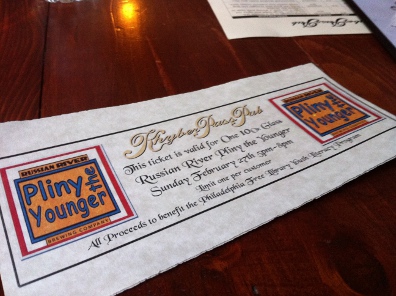 Khyber Pass Pub
This ticket is valid for One 10oz Glass
Russian River Pliny the Younger
Sunday February 27th 5pm-8pm
Limit one per customer
All Proceeds to benefit the Philadelphia Free Library Youth Literacy Program
RUSSIAN RIVER
Pliny the Younger
BREWING COMPANY
RUSSIAN RIVER
Pliny the Younger